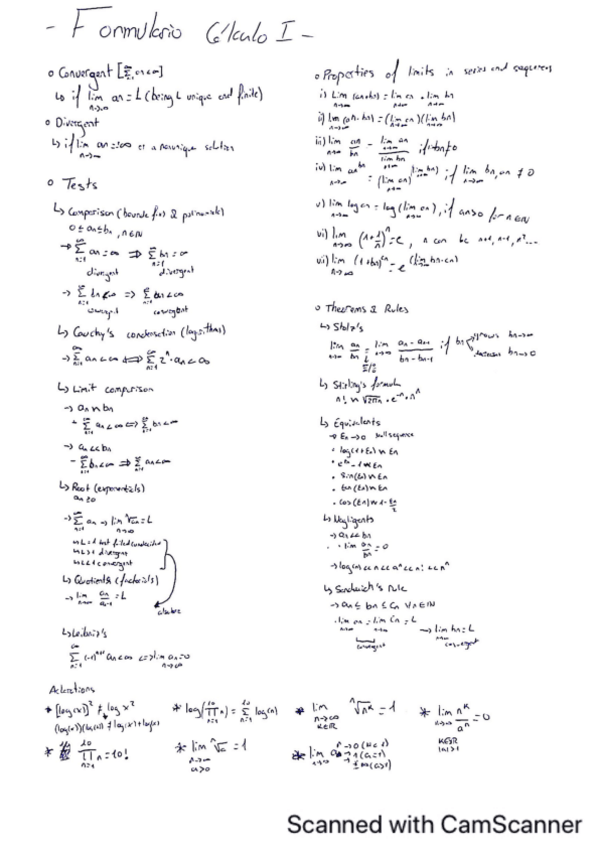 - Formulario Cálculo I -
o Convergent [∑ an < ∞]
↳ if lim an = L (being L unique and finite)
n→∞
o Divergent
↳ if lim an = ±∞ or a nonunique solution
n→∞
o Tests
↳ Comparison (bounded f(x) & polinomials)
0 ≤ an ≤ bn, n∈N
→ ∑ an = ∞ ⇒ ∑ bn = ∞
divergent divergent
convergent convergent
↳ Cauchy's condensation (logarithms)
→ ∑ an < ∞ ⟺ ∑ 2ⁿ · an < ∞
↳ Limit comparison
→ an ~ bn
- ∑ an < ∞ ⟺ ∑ bn < ∞
→ an << bn
- ∑ bn < ∞ ⇒ ∑ an < ∞
↳ Root (exponentials)
an ≥ 0
→ ∑ an → lim ⁿ√an = L
↳ L > 1 divergent
↳ L < 1 convergent
↳ Quotients (factorials)
→ lim an/an-1 = L
↳ Leibniz's
∑ (-1)ⁿ⁺¹ an < ∞ ⟺ lim an = 0
o Properties of limits in series and sequences
i) lim (an+bn) = lim an + lim bn
ii) lim (an·bn) = (lim an)(lim bn)
iii) lim an/bn = lim an / lim bn if bn ≠ 0
iv) lim an^bn = (lim an)^(lim bn) if lim bn, an ≠ 0
v) lim log an = log (lim an), if an > 0 for n∈N
vi) lim (n+1/n)ⁿ = e, n can be n+1, n-1, n²...
vii) lim (1+bn)^cn = e^(lim bn·cn)
o Theorems & Rules
↳ Stolz's
lim an/bn = lim an - an-1 / bn - bn-1 if bn grows bn→∞
decreases bn→0
↳ Stirling's formula
n! ~ √2πn · e⁻ⁿ · nⁿ
↳ Equivalents
→ En → 0 null sequence
· log(1+En) ~ En
· e^En - 1 ~ En
· sin(En) ~ En
· tan(En) ~ En
↳ Negligents
→ an << bn
· lim an/bn = 0
↳ Sandwich's Rule
→ an ≤ bn ≤ cn ∀n∈N
· lim an = lim cn = L → lim bn = L
convergent convergent
Aclarations
* [log(x)]² ≠ log x²
(log(x))(log(x)) ≠ log(x)+log(x)
* log(∏ n) = ∑ log(n)
* lim ⁿ√nᵏ = 1
n→∞
k∈R
* lim nᵏ/aⁿ = 0
k∈R
|a|>1
* ∏ n = 10!
* lim ⁿ√a = 1
n→∞
a>0
Scanned with CamScanner